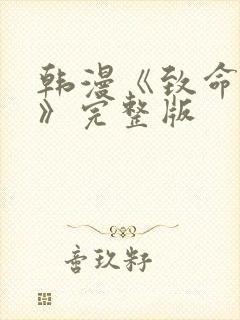 韩漫《致命
》完整版
音玖籽